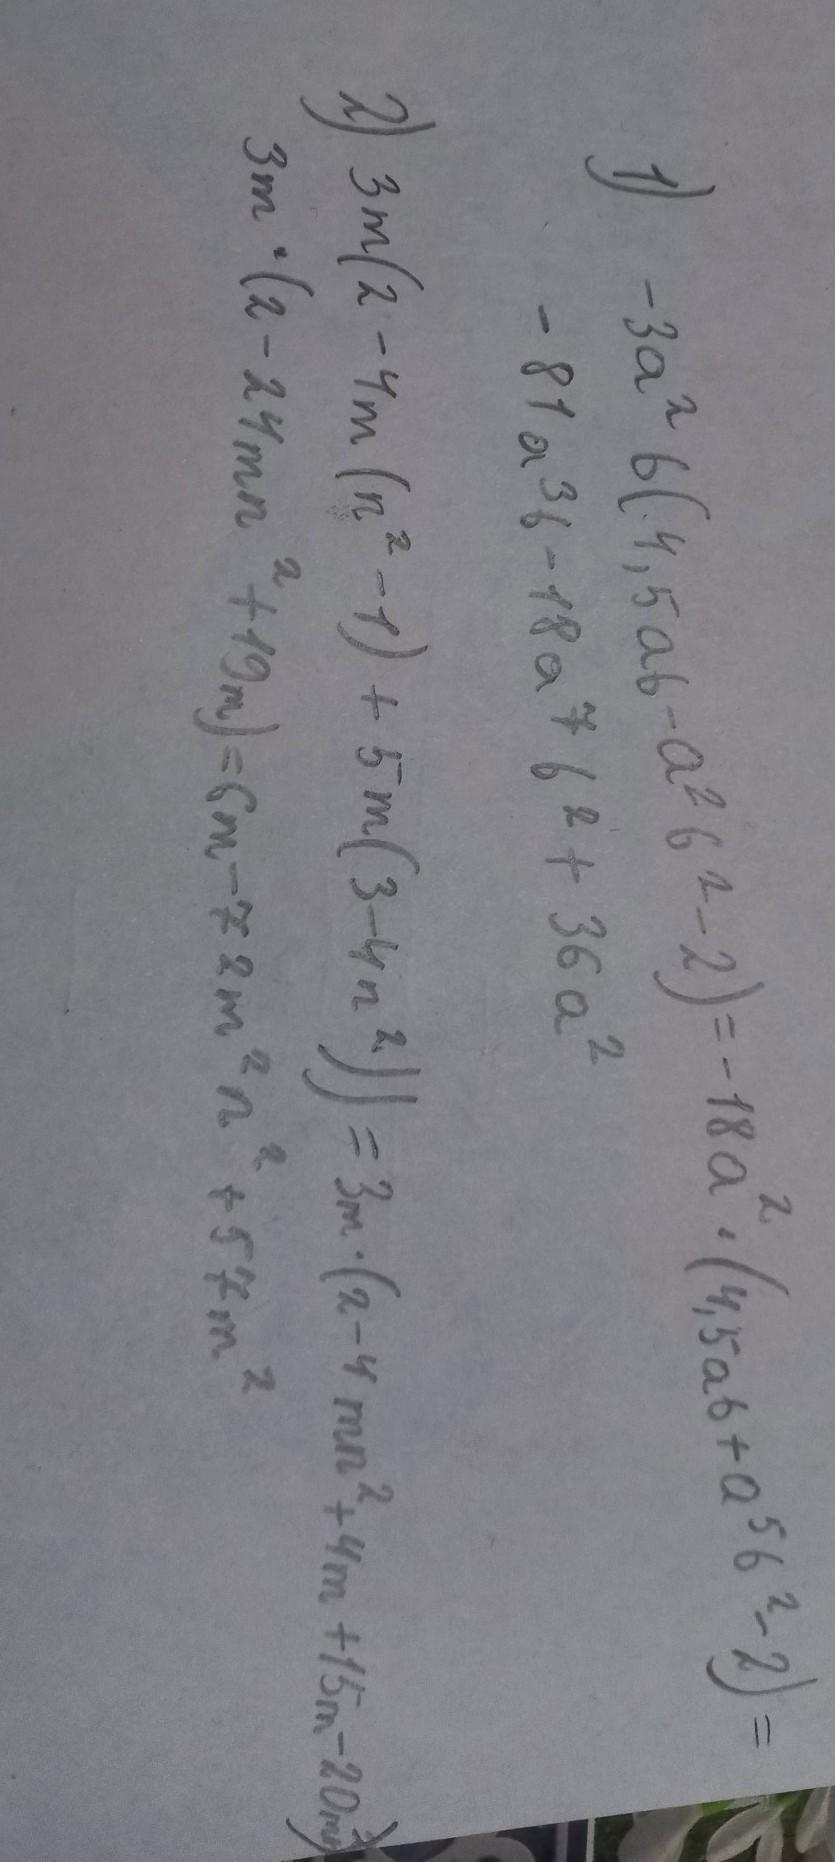 1) -3a²6(4,5ab-a²6²-2)=-18a²·(4,5ab+a⁵6²-2)=
-81a³b-18a⁷b²+36a²
2) 3m(2-4m(n²-1)+5m(3-4n²))=3m·(2-4mn²+4m+15m-20mn²)
3m·(2-24mn²+19m)=6m-72m²n²+57m²